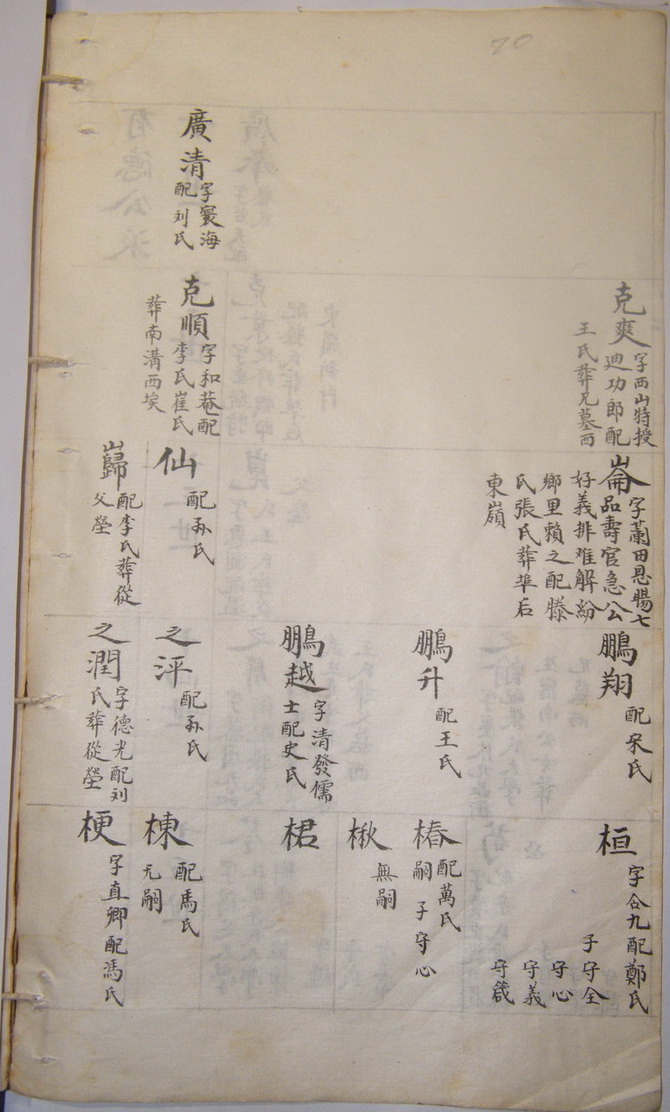 70
廣清
字寰海
配刘氏
克爽
字西山特授
迪功郎配
王氏葬兄墓西
克順
字和菴配
李氏崔氏
葬南溝西埃
崙
字蘭田恩賜七
品壽官急公
好義排难解紛
鄉里賴之配滕
氏張氏葬埠后
東嶺
仙
配孙氏
巋
配李氏葬從
父塋
鵬翔
配宋氏
鵬升
配王氏
鵬越
字清發儒
士配史氏
之泙
配孙氏
之潤
字德光配刘
氏葬從塋
桓
字合九配鄭氏
子守全
守心
守義
守箴
椿
配萬氏
嗣子守心
楸
無嗣
桾
棟
配馬氏
无嗣
梗
字直卿配馮氏